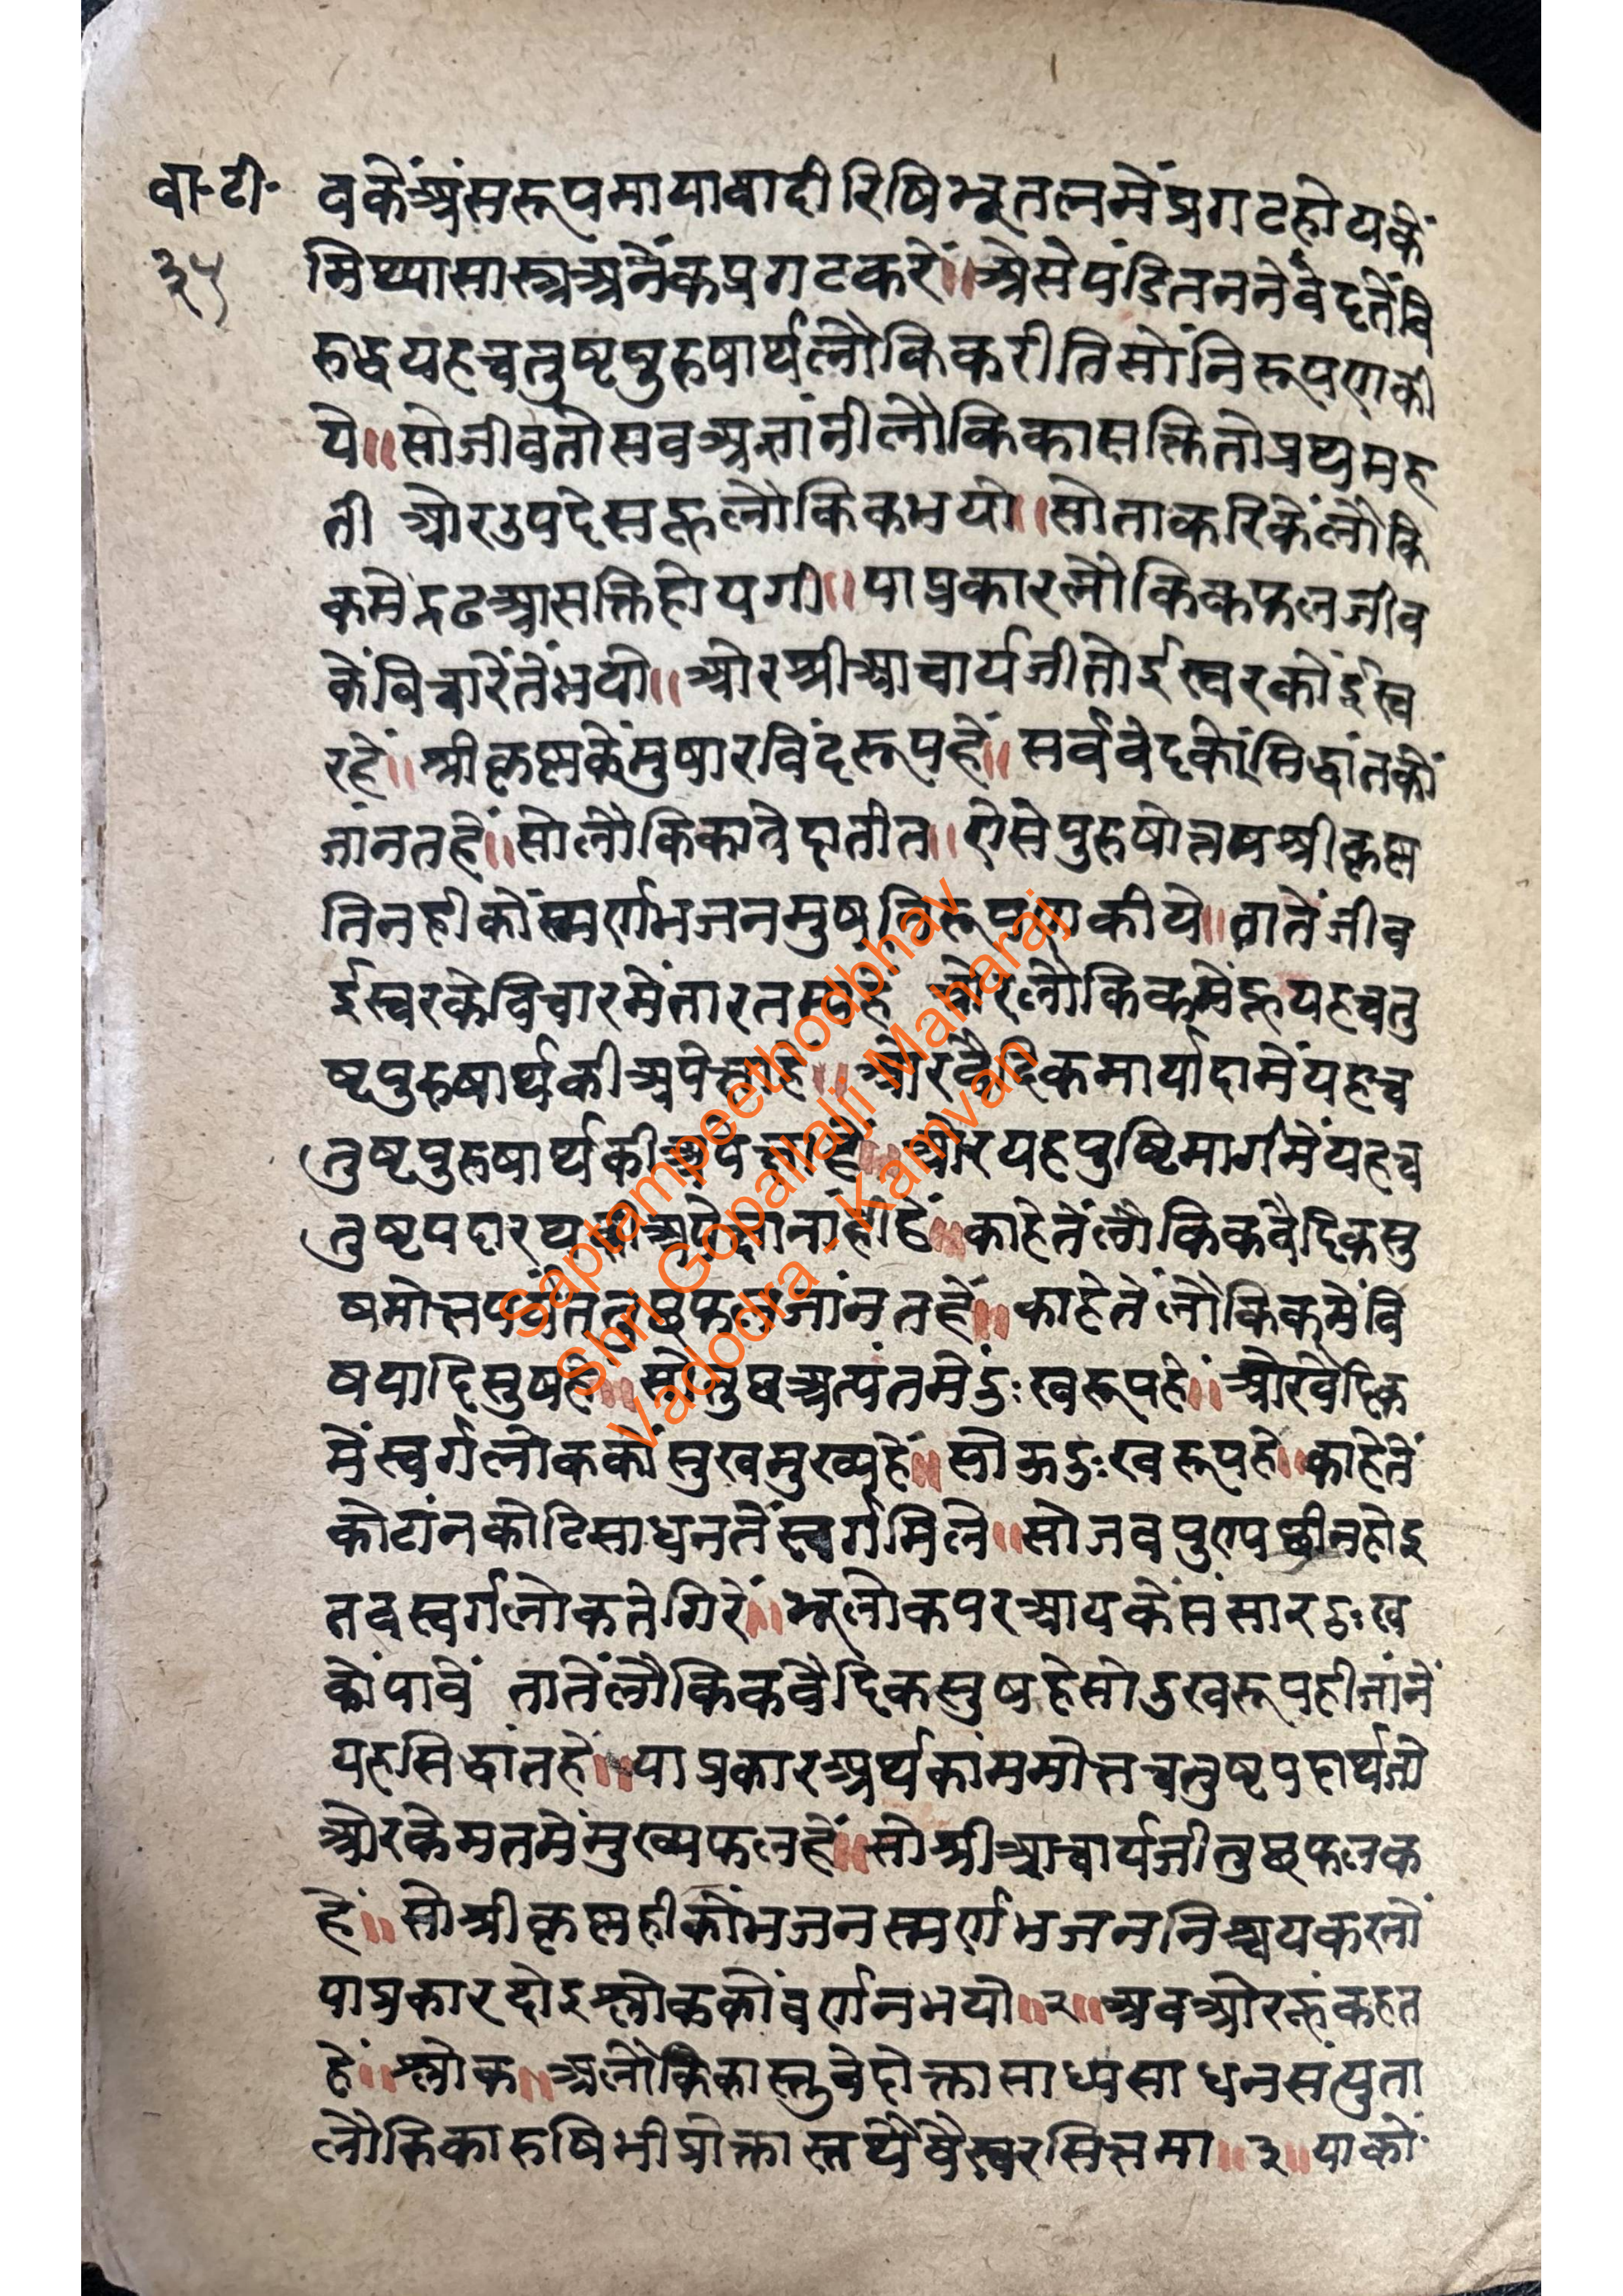 बा॰टी॰
३५
वकेंअंसरूपमायावादीरिषिभूतलमेंप्रगटहोयकें
मिथ्यासास्त्रअनेकप्रगटकरें॥अेसेपंडितननेवेदतेंवि
रुद्धयहचतुष्टपुरुषार्थलौकिकरीतिसोंनिरूपणकी
ये॥सोजीवतोसवअज्ञांनीलौकिकासक्तितोप्रथमह
ती ओरउपदेसहूलौकिकभयो॥सोताकरिकेंलौकि
कमेंदृढआसक्तिहोयगी॥याप्रकारलौकिकफलजीव
केंविचारेंतेंभयो॥ओरश्रीआचार्यजीतोईस्वरकोंईस्व
रहें॥श्रीकृष्णकेंमुषारविंदरूपहें॥सर्ववेदकोंसिद्धांतकों
जांनतहें॥सोलौकिकावेदातीत॥ऐसेपुरुषोत्तमश्रीकृष्ण
तिनहीकोंस्मर्णभजनमुष्यनिरूपणकीये॥तातेंजीव
ईस्वरकेविचारमेंतारतम्यहें ओरलौकिकमेंहूयहचतु
ष्टपुरुषार्थकीअपेक्षाहे॥ओरवैदिकमार्यादामेंयहच
तुष्टपुरुषार्थकीअपेक्षाहें॥ओरयहपुष्टिमार्गमेंयहच
तुष्टपदारथकीअपेक्षानांहींहें॥काहेतेंलौकिकवैदिकसु
षमोक्षपर्यंततुछफलजांनतहें॥काहेतेंलौकिकमेंवि
षयादिसुषहें॥सोतुछअत्यंतमेंदुःखरूपहें॥ओरवेदिक
मेंस्वर्गलोककोंसुखमुख्यहें॥सोऊदुःखरूपहे॥काहेतें
कोटांनकोटिसाधनतेंस्वर्गमिले॥सोजवपुण्यछीनहोइ
तवस्वर्गलोकतेगिरें॥भूलोकपरआयकेंसंसारदुःख
कोंपावें तातेंलौकिकवैदिकसुषहेसोदुखरूपहीजांनें
यहसिद्धांतहें॥याप्रकारअर्थकांममोक्षचतुष्टपदार्थजो
ओरकेमतमेंमुख्यफलहें॥सोश्रीआचार्यजीतुछफलक
हें॥सोश्रीकृष्णहीकोंभजनस्मर्णभजननिश्चयकरनों
याप्रकारदोइश्लोककोंवर्णनभयो॥२॥अवओरहूंकहत
हें॥श्लोक॥अलौकिकास्तुवेदोक्तासाध्यसाधनसंयुता
लौकिकारुषिभीप्रोक्तास्तथैवैस्वरसित्तमा॥३॥याकों
Saptampeethodbhav
Shri Gopallalji Maharaj
Vadodra - Kamvan